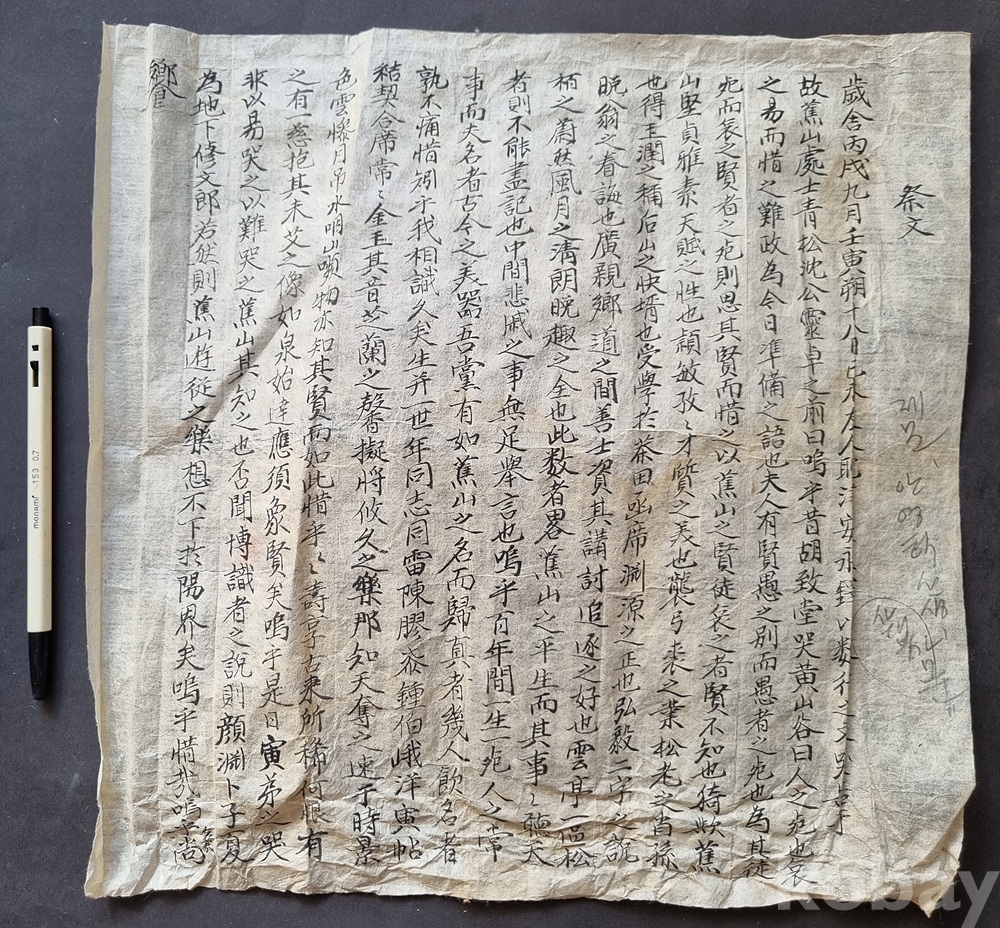 祭文
歲舍丙戌九月壬寅朔十八日己未友人順興安永鎬以数行之文哭告于
故蕉山處士青松沈公靈卓之前曰嗚乎昔胡致堂哭黃山谷曰人之死也哀
之易而惜之難政為今日準備之語也夫人有賢愚之別而愚者之死也為其徒
死而哀之賢者之死則思其賢而惜之以蕉山之賢徒哀之者賢不知也猗歟蕉
山堅貞雅素天賦之性也穎敏孜〻才質之美也襲弓裘之業松老之肖孫
也得玉潤之稱后山之快壻也受學於茶田函席淵源之正也弘毅二字之說
晚翁之眷誨也廣親鄉道之間善士資其講討追逐之好也雲亭一區松
柄之蔚然風月之淸朗晚趣之全也此数者畧蕉山之平生而其事〻聽天
者則不能盡記也中間悲戚之事無足舉言也嗚乎百年間一生一死人之常
事而夫名者古今之美器吾黨有如蕉山之名而歸真者幾人飲名者
孰不痛惜矧乎我相識久矣生并一世年同志同雷陳膠桼鍾伯峨洋寅帖
秸契合席常〻金玉其音芝蘭之馨香擬將攸久之樂那知天奪之速于時景
色雲慘月吊水咽山嚬物亦知其賢而如此惜乎〻壽享古東所稀何恨有
之有一慈抱其未艾之像如泉始達應須象賢矣嗚乎是日寅弟之哭
非以易哭之以難哭之蕉山其知之也否聞博識者之說則顔淵卜子夏
為地下修文郎若然則蕉山遊從之樂想不下於陽界矣嗚乎惜哉嗚乎尚
饗
monami 153 0.7
kobay